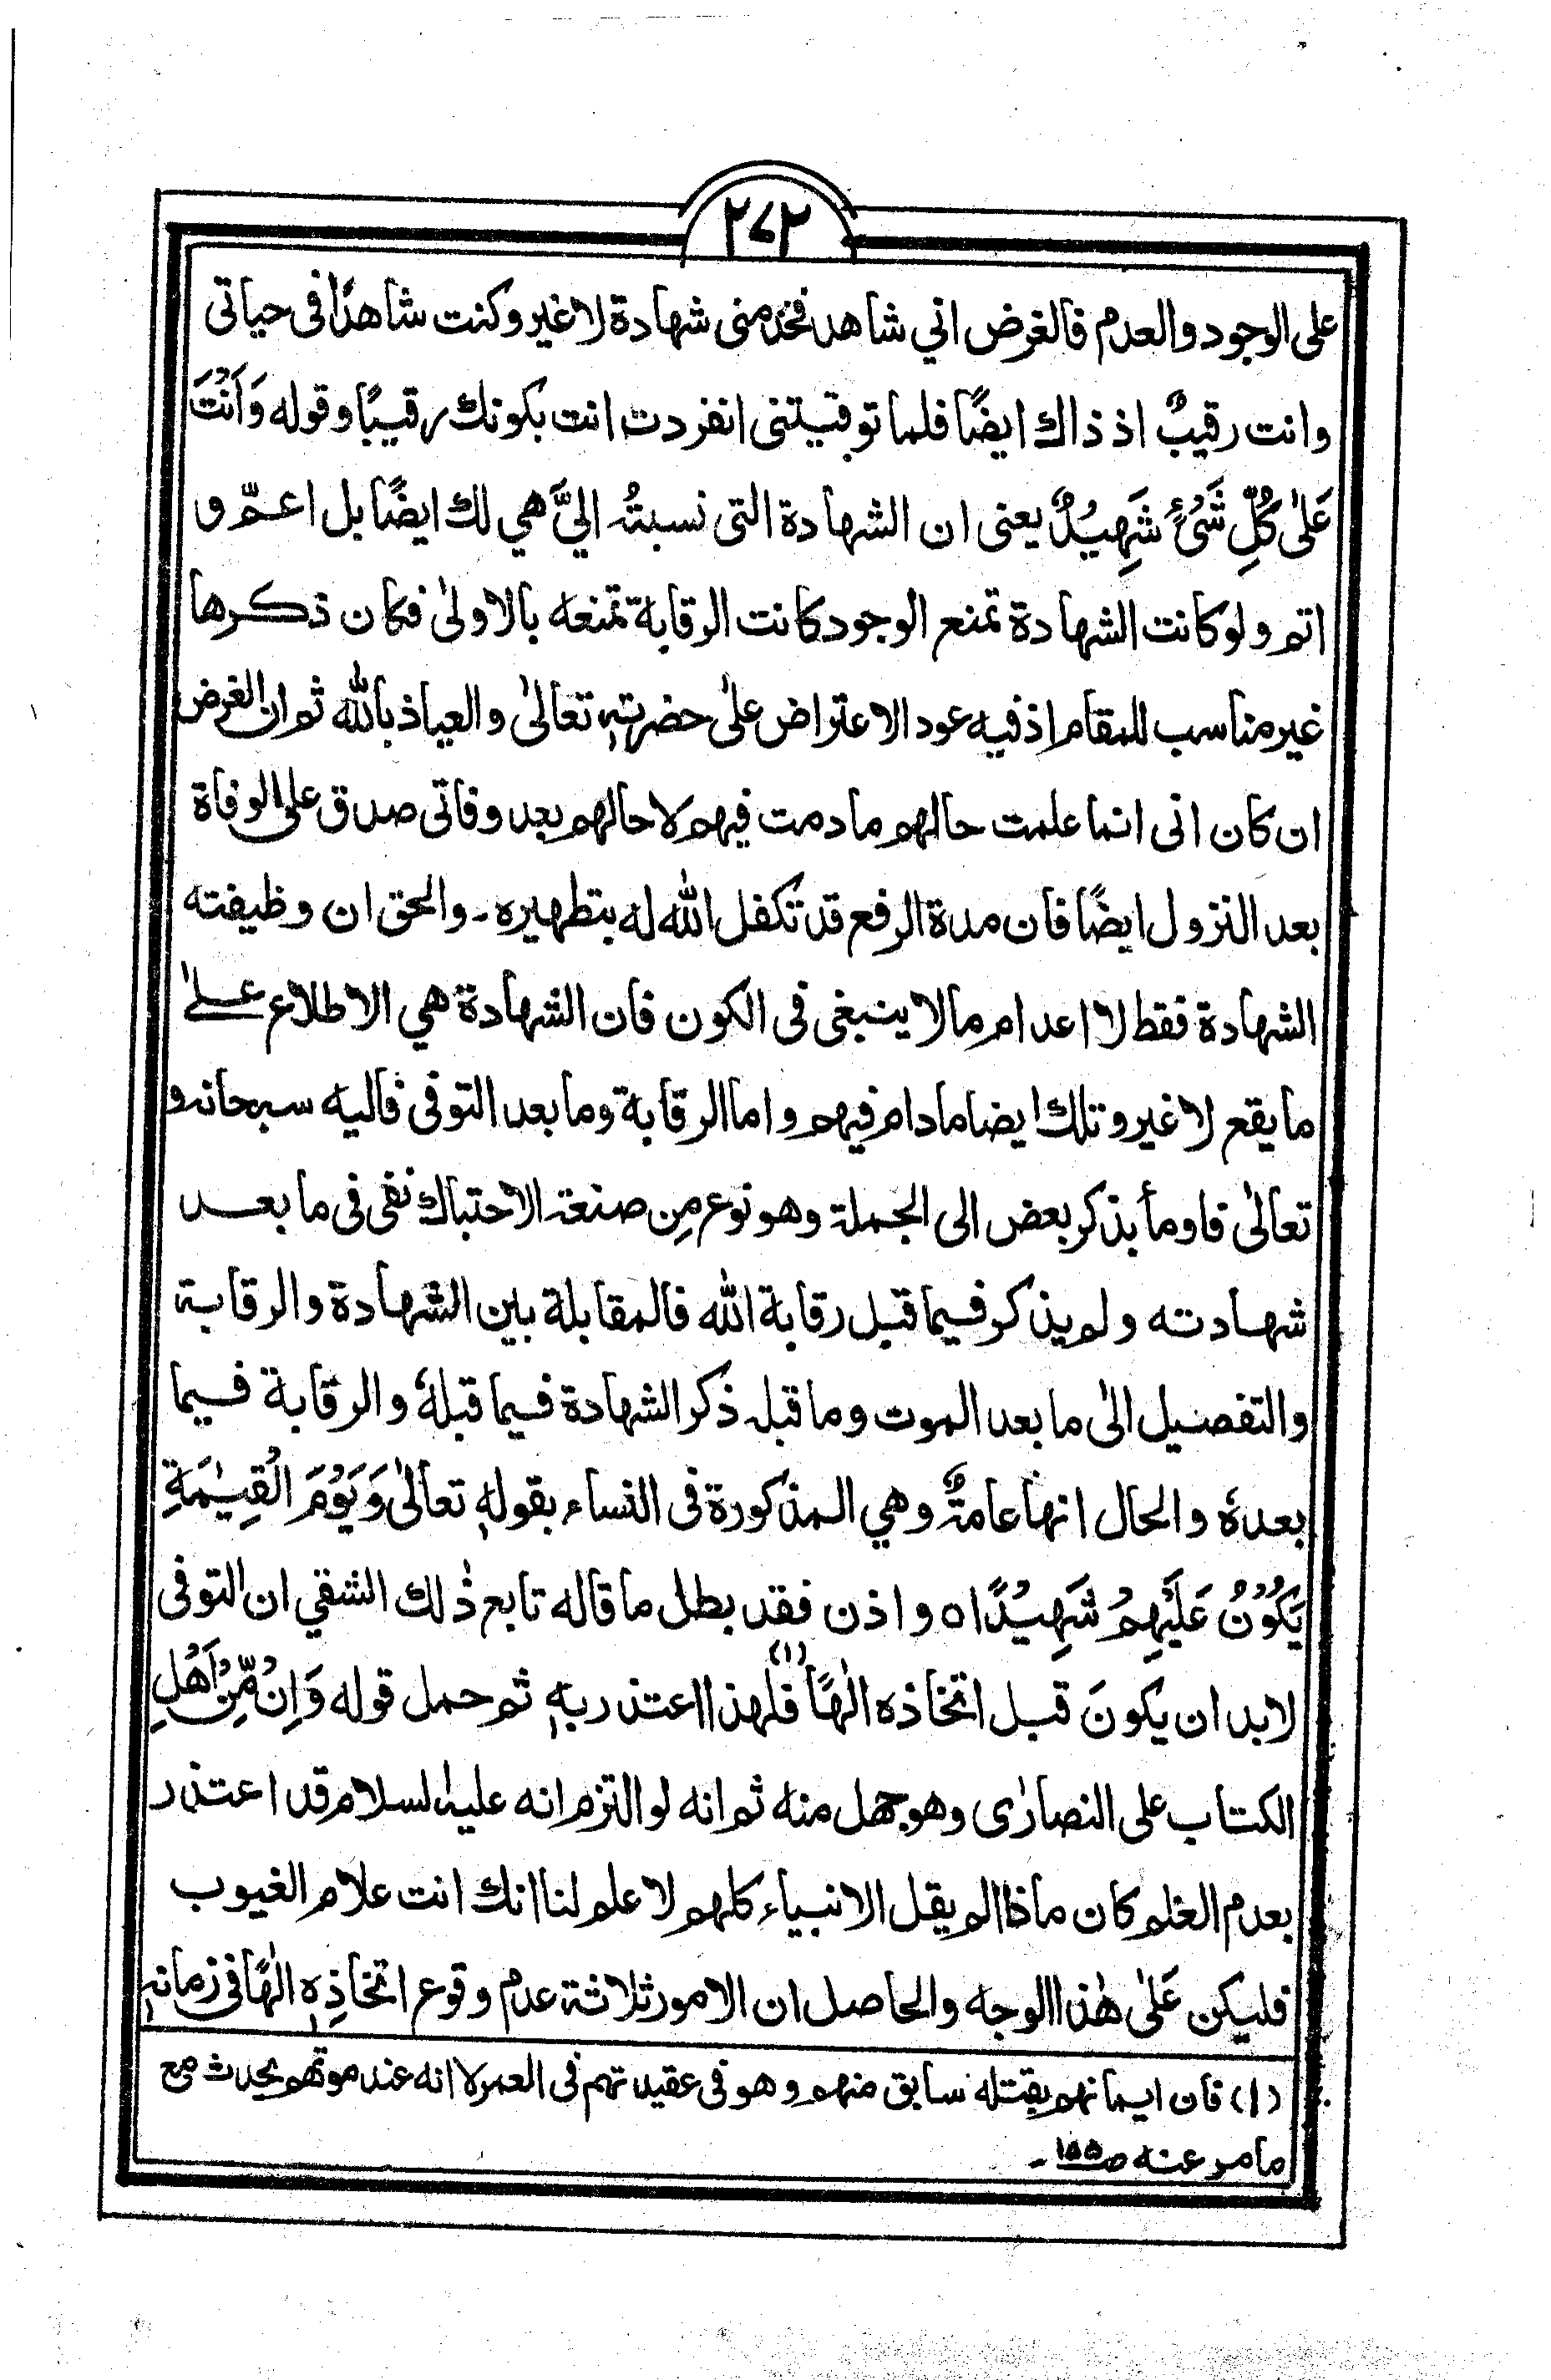 ۲۷۲
على الوجود والعدم فالغرض اني شاهد فخذ منى شهادة لا غير وكنت شاهدًا فى حياتى
وانت رقيبٌ اذ ذاك ايضًا فلما توفيتنى انفردت انت بكونك رقيبًا وقوله وَاَنْتَ
عَلىٰ كُلِّ شَىْءٍ شَهِيْدٌ يعنى ان الشهادة التى نسبتُه اليَّ هي لك ايضًا بل اعمّ و
اتم ولو كانت الشهادة تمنع الوجود كانت الرقابة تمنعه بالاولىٰ فكان ذكرها
غير مناسب للمقام اذ فيه عود الاعتراض علىٰ حضرتهٖ تعالىٰ والعياذ بالله ثم ان الغرض
ان كان انى انما علمت حالهم ما دمت فيهم لا حالهم بعد وفاتى صدق على الوفاة
بعد النزول ايضًا فان مدة الرفع قد تكفل الله له بتطهيره ـ والحق ان وظيفته
الشهادة فقط لا اعدام ما لا ينبغى فى الكون فان الشهادة هي الاطلاع علىٰ
ما يقع لا غير وتلك ايضا ما دام فيهم واما الرقابة وما بعد التوفى فاليه سبحانه و
تعالىٰ فاومأ بذكر بعض الى الجملة وهو نوع مِن صنعة الاحتباك نفى فى ما بعد
شهادته ولم يذكر فيما قبل رقابة الله فالمقابلة بين الشهادة والرقابة
والتفصيل الىٰ ما بعد الموت وما قبله ذكر الشهادة فيما قبلهٗ والرقابة فيما
بعدهٗ والحال انها عامةٌ وهي المذكورة فى النساء بقولهٖ تعالىٰ وَيَوْمَ الْقِيٰمَةِ
يَكُوْنُ عَلَيْهِمْ شَهِيْدًا ہ واذن فقد بطل ما قاله تابع ذٰلك الشقي ان التوفى
لابد ان يكونَ قبل اتخاذه الٰهًا فلهذا اعتذر ربهٖ (۱) ثم حمل قوله وَاِنْ مِّنْ اَهْلِ
الكتاب على النصارٰى وهو جهل منه ثم انه لو التزم انه عليه السلام قد اعتذر
بعدم العلم كان ماذا الم يقل الانبياء كلهم لا علم لنا انك انت علام الغيوب
فليكن عَلىٰ هٰذا الوجه والحاصل ان الامور ثلاثة عدم وقوع اتخاذِهٖ الٰهًا فى زمانهٖ
(۱) فان ايمانهم بقتله سابق منهم وهو فى عقيدتهم فى العمر لا انه عند موتهم يحدث مع
ما مر عنه صـ۱۵۵ ـ